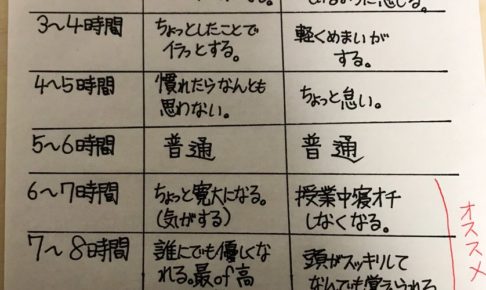 3〜4時間
ちょっとしたことで
イラっとする。
軽くめまいが
する。
4〜5時間
慣れたらなんとも
思わない。
ちょっと怠い。
5〜6時間
普通
普通
6〜7時間
ちょっと寛大になる。
(気がする)
授業中寝オチ
しなくなる。
7〜8時間
誰にでも優しくな
れる。最of高
頭がスッキリして
なんでも覚えられる
オススメ